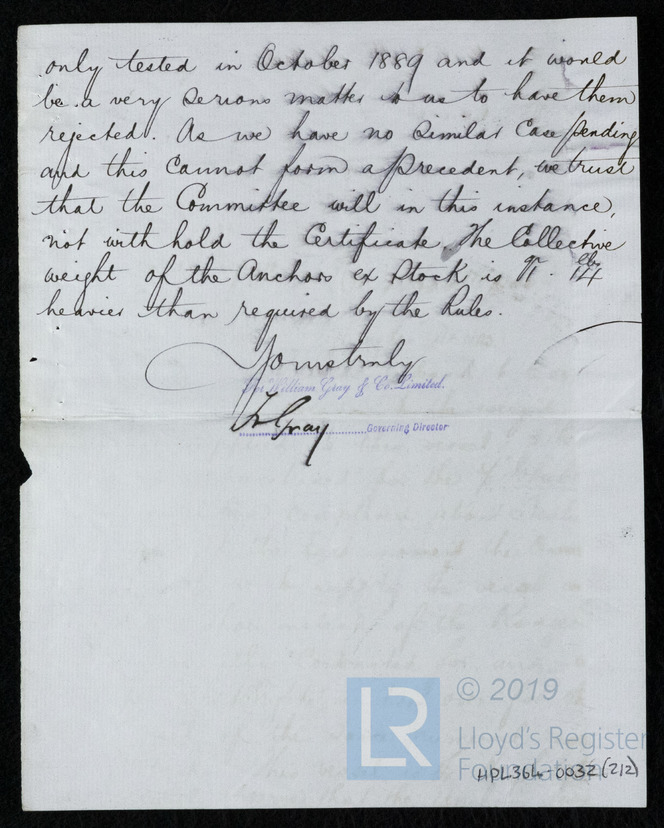 only tested in October 1889 and it would
be a very serious matter to us to have them
rejected. As we have no similar case pending
and this cannot form a precedent, we trust
that the Committee will in this instance,
not withhold the Certificate. The Collective
weight of the Anchors ex Stock is 14 lbs
heavier than required by the Rules.
Yours truly
For William Gray & Co. Limited.
W Gray
Governing Director
LR
© 2019
Lloyd's Register
Foundation
HPL364-0032 (2/2)